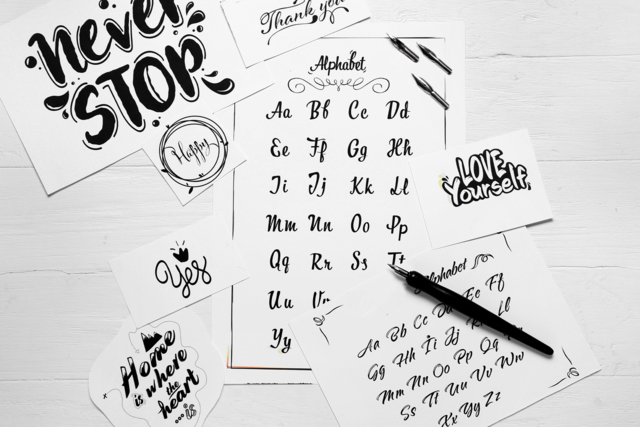 Never
STOP
Thank you
Happy
Alphabet
Aa Bb Cc Dd
Ee Ff Gg Hh
Ii Jj Kk Ll
Mm Nn Oo Pp
Qq Rr Ss Tt
Uu Vv
Yy
LOVE
Yourself
Yes
Home
is where
the
heart
...is
Alphabet
Aa Bb Cc Dd Ee Ff
Gg Hh Ii Jj Kk Ll
Mm Nn Oo Pp Qq Rr
Ss Tt Uu Vv Ww
Xx Yy Zz